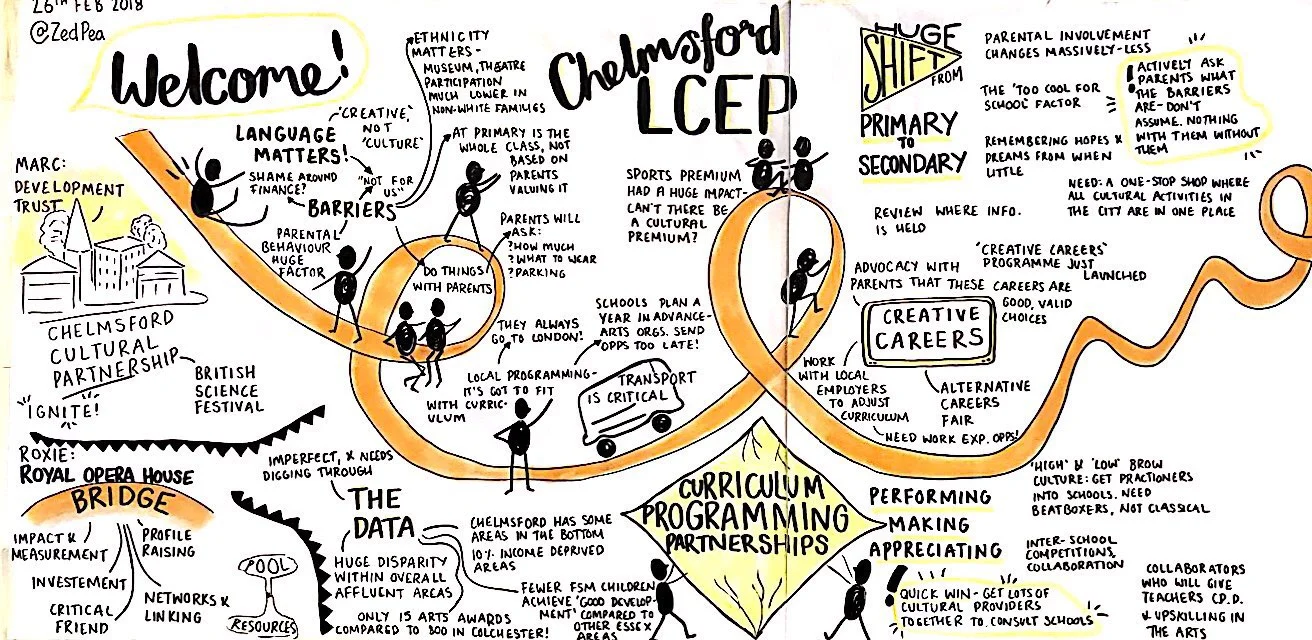 26TH FEB 2018
@ZedPea
Welcome!
MARC:
DEVELOPMENT
TRUST
CHELMSFORD
CULTURAL
PARTNERSHIP
"IGNITE!"
BRITISH
SCIENCE
FESTIVAL
ROXIE:
ROYAL OPERA HOUSE
BRIDGE
IMPACT &
MEASUREMENT
INVESTEMENT
CRITICAL
FRIEND
PROFILE
RAISING
NETWORKS &
LINKING
POOL
RESOURCES
LANGUAGE
MATTERS!
"CREATIVE,"
NOT
"CULTURE"
SHAME AROUND
FINANCE?
"NOT FOR
US"
BARRIERS
PARENTAL
BEHAVIOUR
HUGE
FACTOR
ETHNICITY
MATTERS-
MUSEUM, THEATRE
PARTICIPATION
MUCH LOWER IN
NON-WHITE FAMILIES
AT PRIMARY IS THE
WHOLE CLASS, NOT
BASED ON
PARENTS
VALUING IT
DO THINGS
WITH PARENTS
PARENTS WILL
ASK:
?HOW MUCH
?WHAT TO WEAR
?PARKING
THEY ALWAYS
GO TO LONDON!
LOCAL PROGRAMMING-
IT'S GOT TO FIT
WITH CURRIC-
ULUM
SCHOOLS PLAN A
YEAR IN ADVANCE-
ARTS ORGS. SEND
OPPS TOO LATE!
TRANSPORT
IS CRITICAL
IMPERFECT, & NEEDS
DIGGING THROUGH
THE
DATA
HUGE DISPARITY
WITHIN OVERALL
AFFLUENT AREAS
ONLY 15 ARTS AWARDS
COMPARED TO 300 IN COLCHESTER!
CHELMSFORD HAS SOME
AREAS IN THE BOTTOM
10% INCOME DEPRIVED
AREAS
FEWER FSM CHILDREN
ACHIEVE 'GOOD DEVELOP-
MENT' COMPARED TO
OTHER ESSEX
AREAS
Chelmsford
LCEP
SPORTS PREMIUM
HAD A HUGE IMPACT-
CAN'T THERE BE
A CULTURAL
PREMIUM?
HUGE
SHIFT
FROM
PRIMARY
TO
SECONDARY
PARENTAL INVOLVEMENT
CHANGES MASSIVELY-LESS
THE 'TOO COOL FOR
SCHOOL' FACTOR
REMEMBERING HOPES &
DREAMS FROM WHEN
LITTLE
! ACTIVELY ASK
PARENTS WHAT
THE BARRIERS
ARE-DON'T
ASSUME. NOTHING
WITH THEM WITHOUT
THEM
NEED: A ONE-STOP SHOP WHERE
ALL CULTURAL ACTIVITIES IN
THE CITY ARE IN ONE PLACE
REVIEW WHERE INFO.
IS HELD
"CREATIVE CAREERS"
PROGRAMME JUST
LAUNCHED
ADVOCACY WITH
PARENTS THAT THESE CAREERS ARE
GOOD, VALID
CHOICES
CREATIVE
CAREERS
WORK
WITH LOCAL
EMPLOYERS
TO ADJUST
CURRICULUM
ALTERNATIVE
CAREERS
FAIR
NEED WORK EXP. OPPS!
CURRICULUM
PROGRAMMING
PARTNERSHIPS
PERFORMING
MAKING
APPRECIATING
! QUICK WIN - GET LOTS OF
CULTURAL PROVIDERS
TOGETHER TO CONSULT SCHOOLS
'HIGH' & 'LOW' BROW
CULTURE: GET PRACTIONERS
INTO SCHOOLS. NEED
BEATBOXERS, NOT CLASSICAL
INTER-SCHOOL
COMPETITIONS,
COLLABORATION
COLLABORATORS
WHO WILL GIVE
TEACHERS C.P.D.
& UPSKILLING IN
THE ARTS